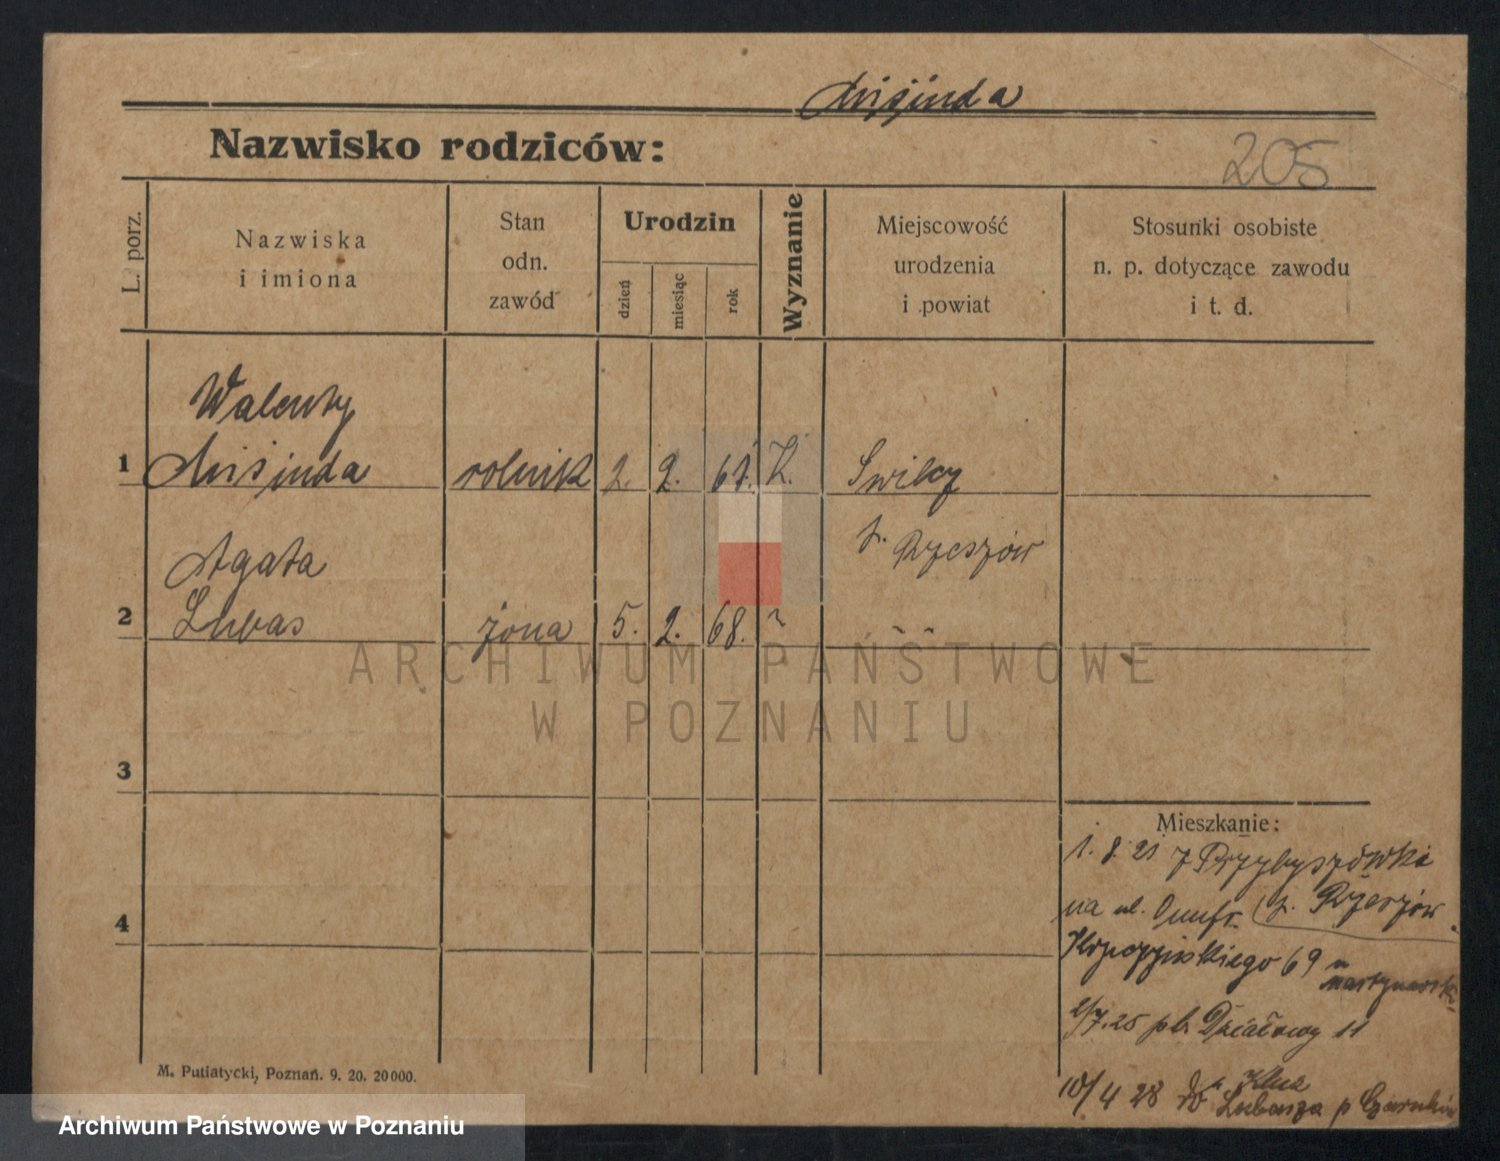 Misiuda
Nazwisko rodziców:
205
L. porz.
Nazwiska
i imiona
Stan
odn.
zawód
Urodzin
dzień
miesiąc
rok
Wyznanie
Miejscowość
urodzenia
i powiat
Stosunki osobiste
n. p. dotyczące zawodu
i t. d.
Walenty
1 Misiuda rolnik 2. 2. 61. K. Swilcy
p. Rzeszów
Agata
2 Lubas żona 5. 2. 68. "
3
4
Mieszkanie:
1. 8. 21 z Przybyszówki
na ul. Onufr. p. Rzeszów.
Kopczyńskiego 69
2/7.25 pl. Działowy 11
10/4 28 do
Lubasza p Czarnków
M. Putiatycki, Poznań. 9. 20. 20000.
ARCHIWUM PAŃSTWOWE
W POZNANIU
Archiwum Państwowe w Poznaniu